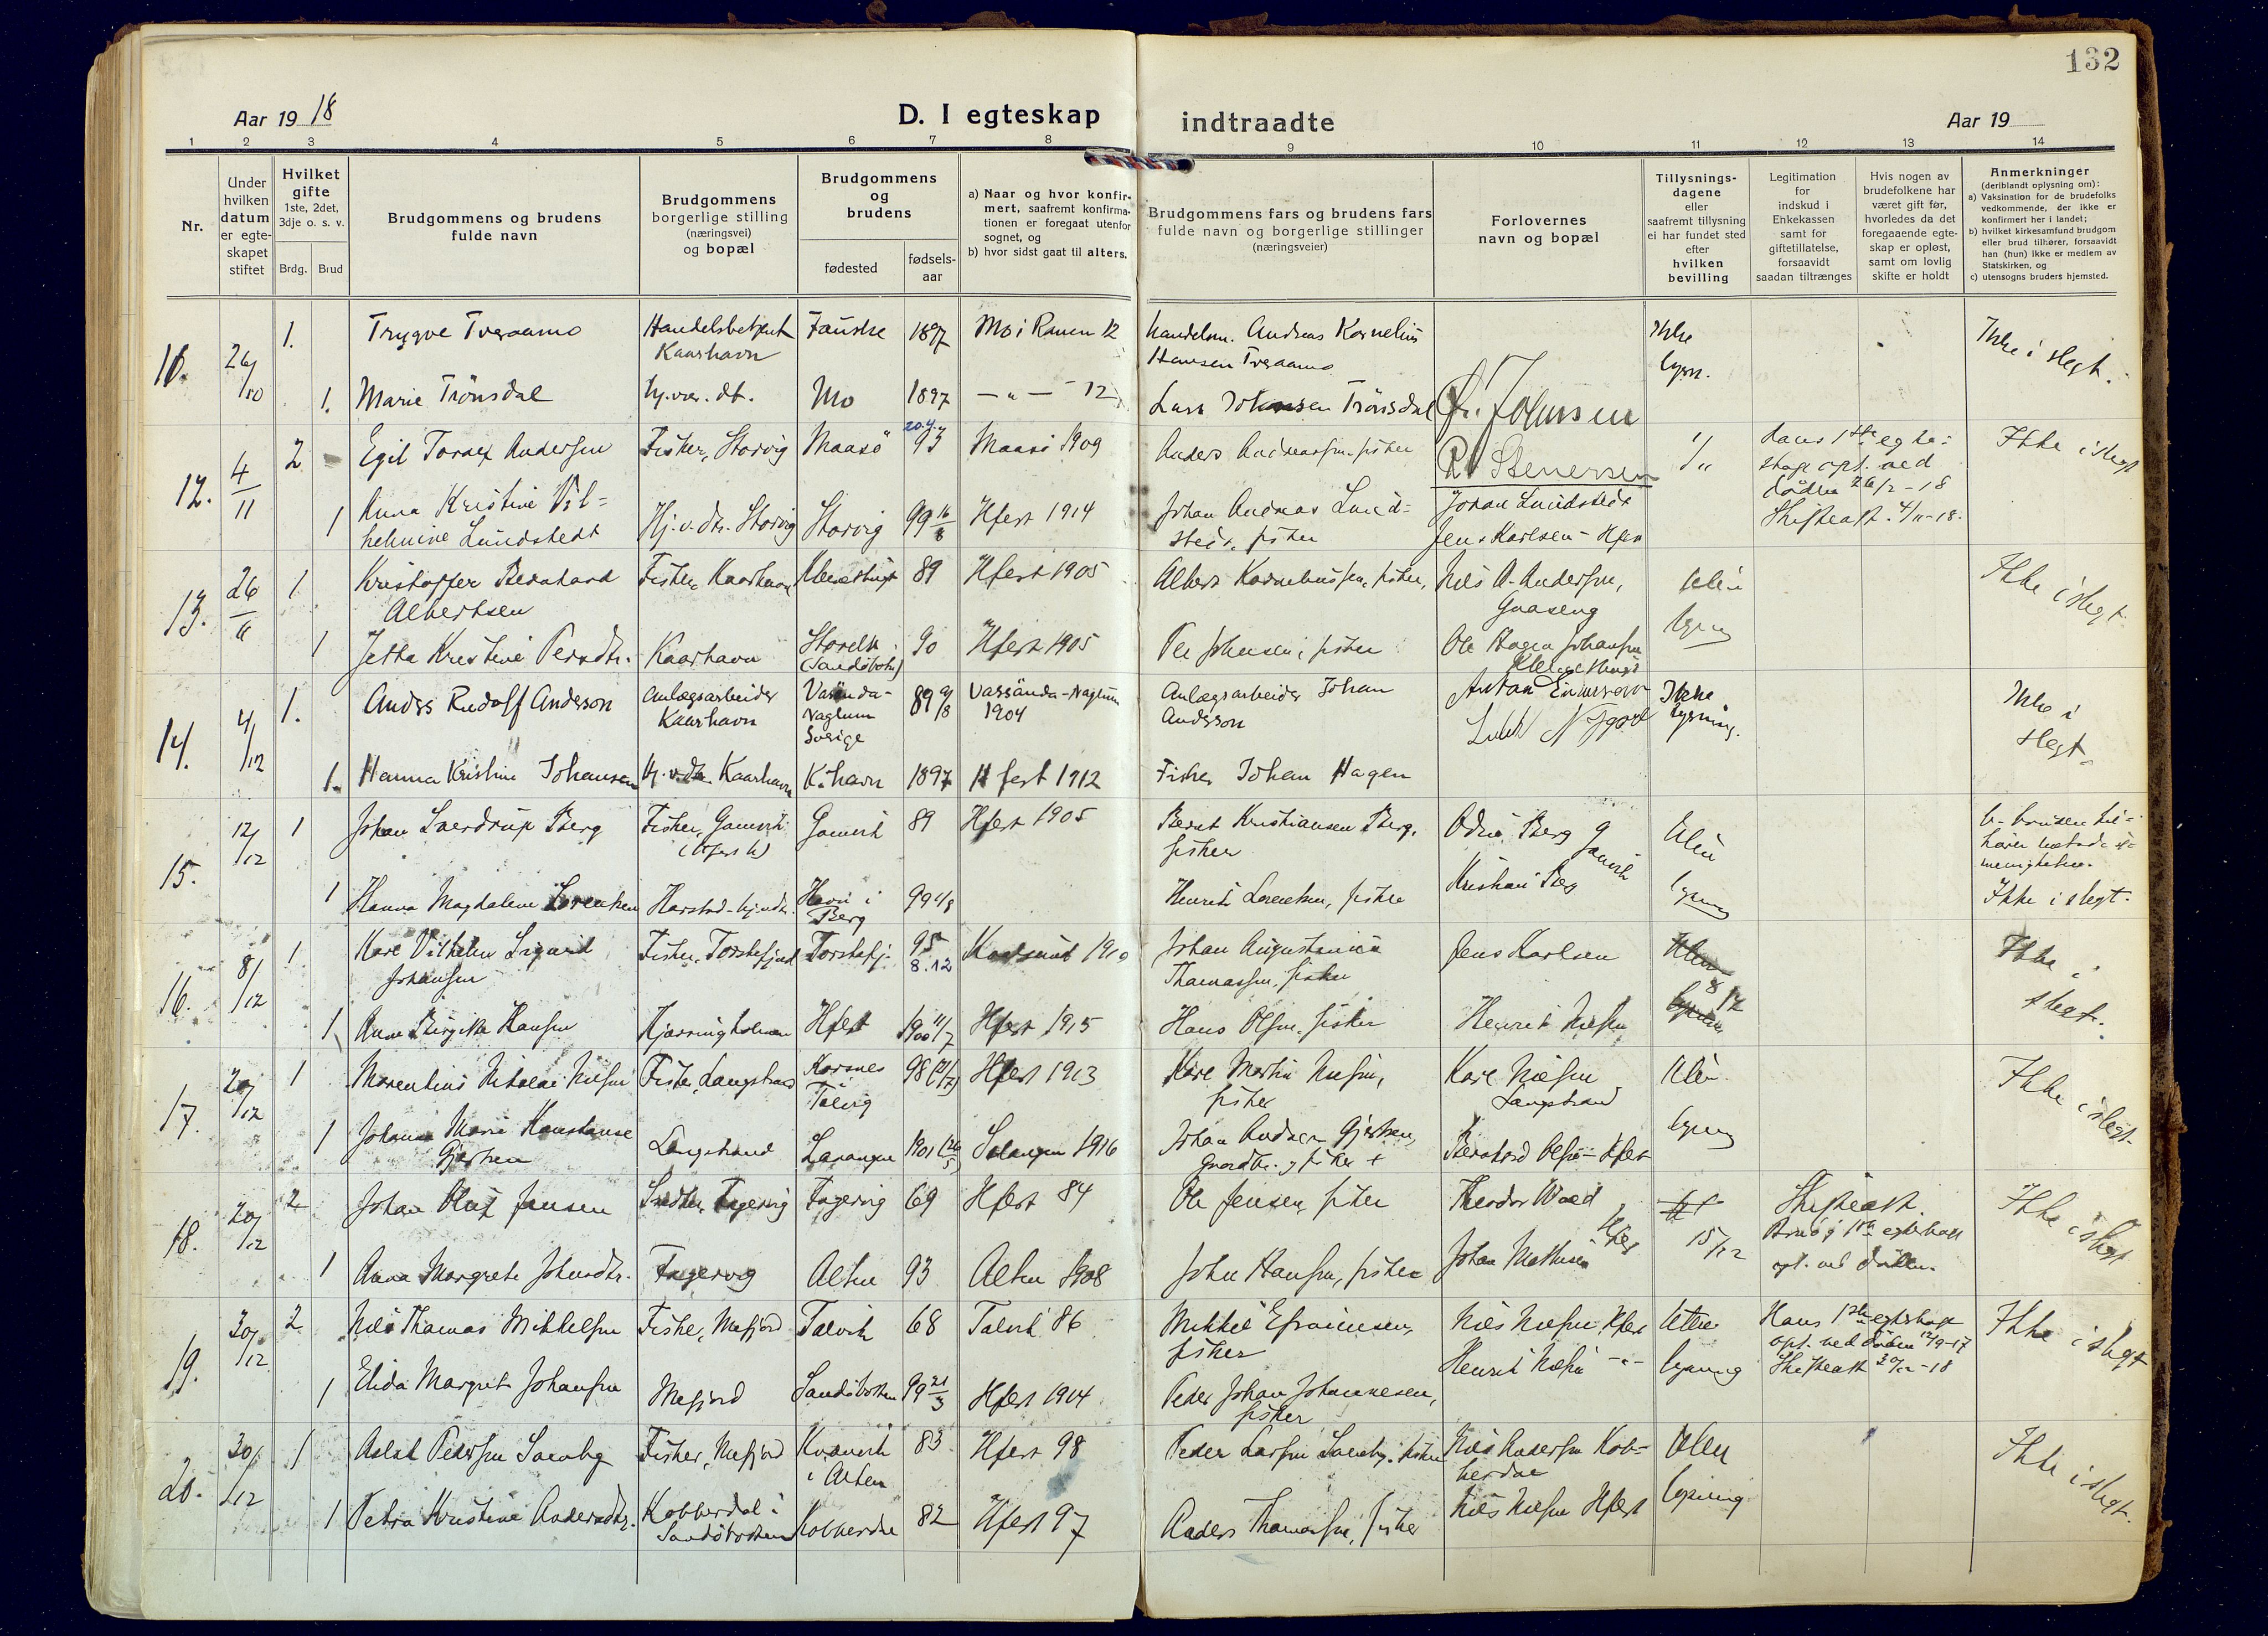 132
Aar 19 18
D. I egteskap
indtraadte
Aar 19
1 2 3 4 5 6 7 8 9 10 11 12 13 14
Nr.
Under
hvilken
datum
er egte-
skapet
stiftet
Hvilket
gifte
1ste, 2det,
3dje o. s. v.
Brdg. Brud
Brudgommens og brudens
fulde navn
Brudgommens
borgerlige stilling
(næringsvei)
og bopæl
Brudgommens
og
brudens
fødested
fødsels-
aar
a) Naar og hvor konfir-
mert, saafremt konfirma-
tionen er foregaat utenfor
sognet, og
b) hvor sidst gaat til alters.
Brudgommens fars og brudens fars
fulde navn og borgerlige stillinger
(næringsveier)
Forlovernes
navn og bopæl
Tillysnings-
dagene
eller
saafremt tillysning
ei har fundet sted
efter
hvilken
bevilling
Legitimation
for
indskud i
Enkekassen
samt for
giftetillatelse,
forsaavidt
saadan tiltrænges
Hvis nogen av
brudefolkene har
været gift før,
hvorledes da det
foregaaende egte-
skap er opløst,
samt om lovlig
skifte er holdt
Anmerkninger
(deriblandt oplysning om):
a) Vaksination for de brudefolks
vedkommende, der ikke er
konfirmert her i landet;
b) hvilket kirkesamfund brudgom
eller brud tilhører, forsaavidt
han (hun) ikke er medlem av
Statskirken, og
c) utensogns bruders hjemsted.
26/10 1. Trygve Tveraamo
Kaarhavn
Fauske 1897 Mo i Ranen 12
Handelsm. Andreas Kornelius
Hansen Tveraamo
Ikke
lysn.
Ikke i slegt.
1. Marie Trönsdal Hj.vær. dt. Mo 1897 - " - 12
Lars Johansen Trönsdal
12. 4/11 2 Egil Andersen Fisker, Storvig Maasö 20.4. 93 Maasö 1909
Anders Andreassen fisker
R. Stenersen
hans 1ste egte-
skap opl. ved
döden 26/2-18
Skifteatt. 4/11-18.
Ikke i slegt
1 Anna Kristine Vil-
helmine Lundstedt
Hj.v.dtr. Storvig Storvig 99 16/8 Hfest 1914
Johan Andreas Lund-
stedt, fisker
Johan Lundstedt
Jens Karlsen - Hfest
13. 26/11 1 Kristoffer Bernhard
Albertsen
Fisker, Kaarhavn 89 Hfest 1905
Albert Korneliussen, fisker,
Nils A. Andersen,
Uten
lysning
Ikke i slegt
1 Jetta Kristine Persdtr. Kaarhavn
(Sandöbotn)
90 Hfest 1905
Per Johnsen, fisker
Ole Hagen Johansen
14. 4/12 1. Anders Rudolf Anderson
Anlægsarbeider
Kaarhavn
Naglum
Sverige
89 9/8 Vassända-Naglum
1904
Anlægsarbeider Johan
Anderson
Ikke
lysning.
Ikke i
slegt.
1. Hanna Kristine Johansen Hj.v.dtr. Kaarhavn K.havn 1897 Hfest 1912
Fisker Johan Hagen
15. 12/12 1 Johan Sverdrup Berg
Fisker, Gamvik
Gamvik 89 Hfest 1905
Bernt Kristiansen Berg,
fisker
Berg Gamvik
Uten
lysning
b- bruden til-
hører metodist-
menigheten.
Ikke i slegt.
1 Hanna Magdalene Lorentsen Harstad - hj.v.dtr. Havn i
Berg
99 4/8
Henrik Lorentsen, fisker
Kristian Berg
16. 8/12 1 Karl Vilhelm Sigurd
Johansen
Fisker, Torskefjord Torskefj. 95
8.12
1910
Johan Augustinius
Thomassen, fisker
Jens Karlsen
Uten
8/12
Ikke i
slegt.
1 Anna Birgitte Hansen Hfest 1900 11/7 Hfest 1915
Hans Olsen, fisker
Henrik Nielsen
17. 20/12 1 Morentius Nikolai Nielsen Fisker, Langstrand Korsnes
Talvig
98 Hfest 1913
Karl Martin Nielsen,
fisker
Karl Nielsen
Langstrand
Uten
lysning
Ikke i slegt
1 Johanna Marie Konstanse
Gjertsen
Langstrand Lavangen 1901 Salangen 1916
Johan Andreas Gjertsen,
Gaardbr. og fisker +
Bernhard Olsen - Hfest
18. 20/12 2 Johan Oluf Jensen Fagervig Fagervig 69 Hfest 84
Ole Jensen, fisker
Theodor Wold
Hfest
15/12
Skifteatt.
egteskap
opl. ved döden
Ikke i slegt
1 Anna Margrete Johnsdtr. Fagervig Alten 93 Alten 1908
John Hansen, fisker
Johan Mathisen
19. 30/12 2 Nils Thomas Mikkelsen Fisker, Mefjord Talvik 68 Talvik 86
Mikkel Efraimsen,
fisker
Nils Nielsen Hfest
Uten
lysning
Hans 1ste egteskap
opl. ved döden 12/9-17
Skifteatt 30/12-18
Ikke i slegt
1 Elida Margret Johansen Mefjord Sandöbotten 99 21/3 Hfest 1914
Peder Johan Johannesen,
fisker
Henrik Nielsen - " -
20. 30/12 1 Aslak Pedersen Saraby Fisker, Mefjord Kvænvik
i Alten
83 Hfest 98
Peder Larsen Saraby, fisker
Nils Andersen Kob-
berdal
Uten
lysning
Ikke i slegt.
1 Petra Kristine Andersdtr. Kobberdal i
Sandöbotten
Kobberdal 82 Hfest 97
Anders Thomassen, fisker
Nils Nielsen Hfest